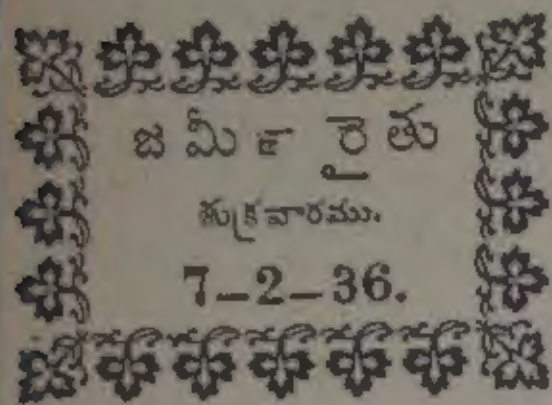 జమీ౯ రైతు
శుక్రవారము.
7–2–36.